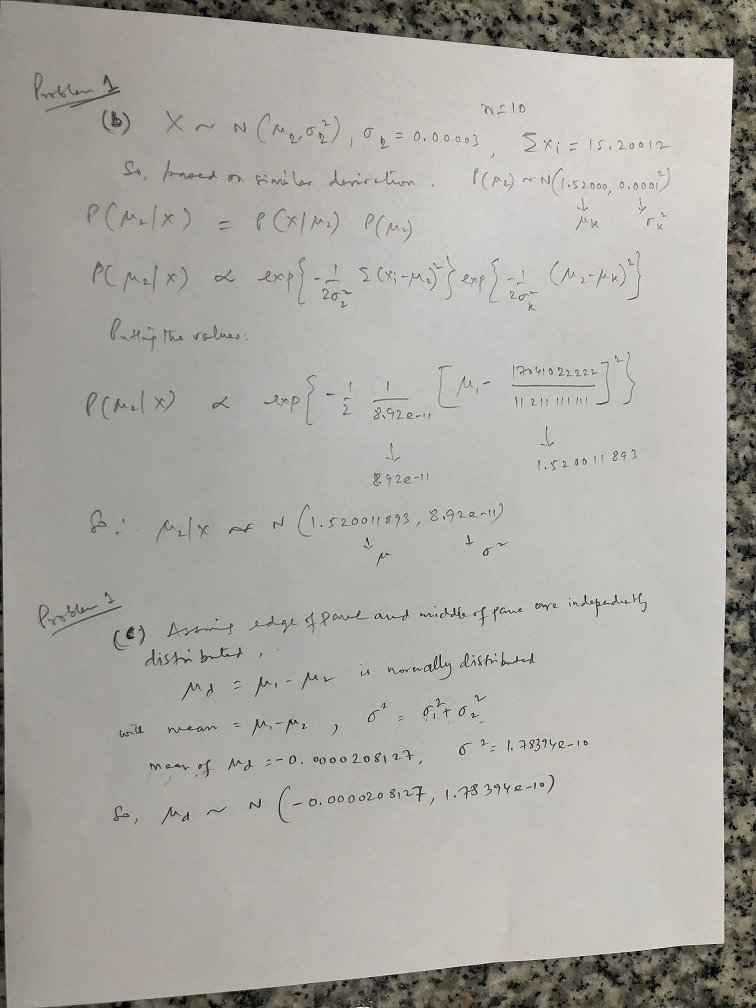 Problem 1
n=10
(b) X ~ N(μ₂, σ₂²), σ₂ = 0.00003, Σxi = 15.20012
So, based on similar derivation. P(μ₂) ~ N(1.52000, 0.0001²)
↓ ↓
μk σk²
P(μ₂|x) = P(X|μ₂) P(μ₂)
P(μ₂|x) ∝ exp{-1/2σ₂² Σ(xi-μ₂)²} exp{-1/2σk² (μ₂-μk)²}
Putting the values:
P(μ₂|x) ∝ exp{-1/2 1/8.92e-11 [μ₁- 17041022222/11211111111]²}
↓ ↓
8.92e-11 1.520011893
So ∴ μ₂|x ~ N(1.520011893, 8.92e-11)
↓ ↓
μ σ²
Problem 1
(c) Assuming edge of pane and middle of pane are independently
distributed,
μd = μ₁-μ₂ is normally distributed
with mean = μ₁-μ₂, σ² = σ₁²+σ₂²
mean of μd = -0.0000208127, σ² = 1.78394e-10
So, μd ~ N(-0.0000208127, 1.78394e-10)